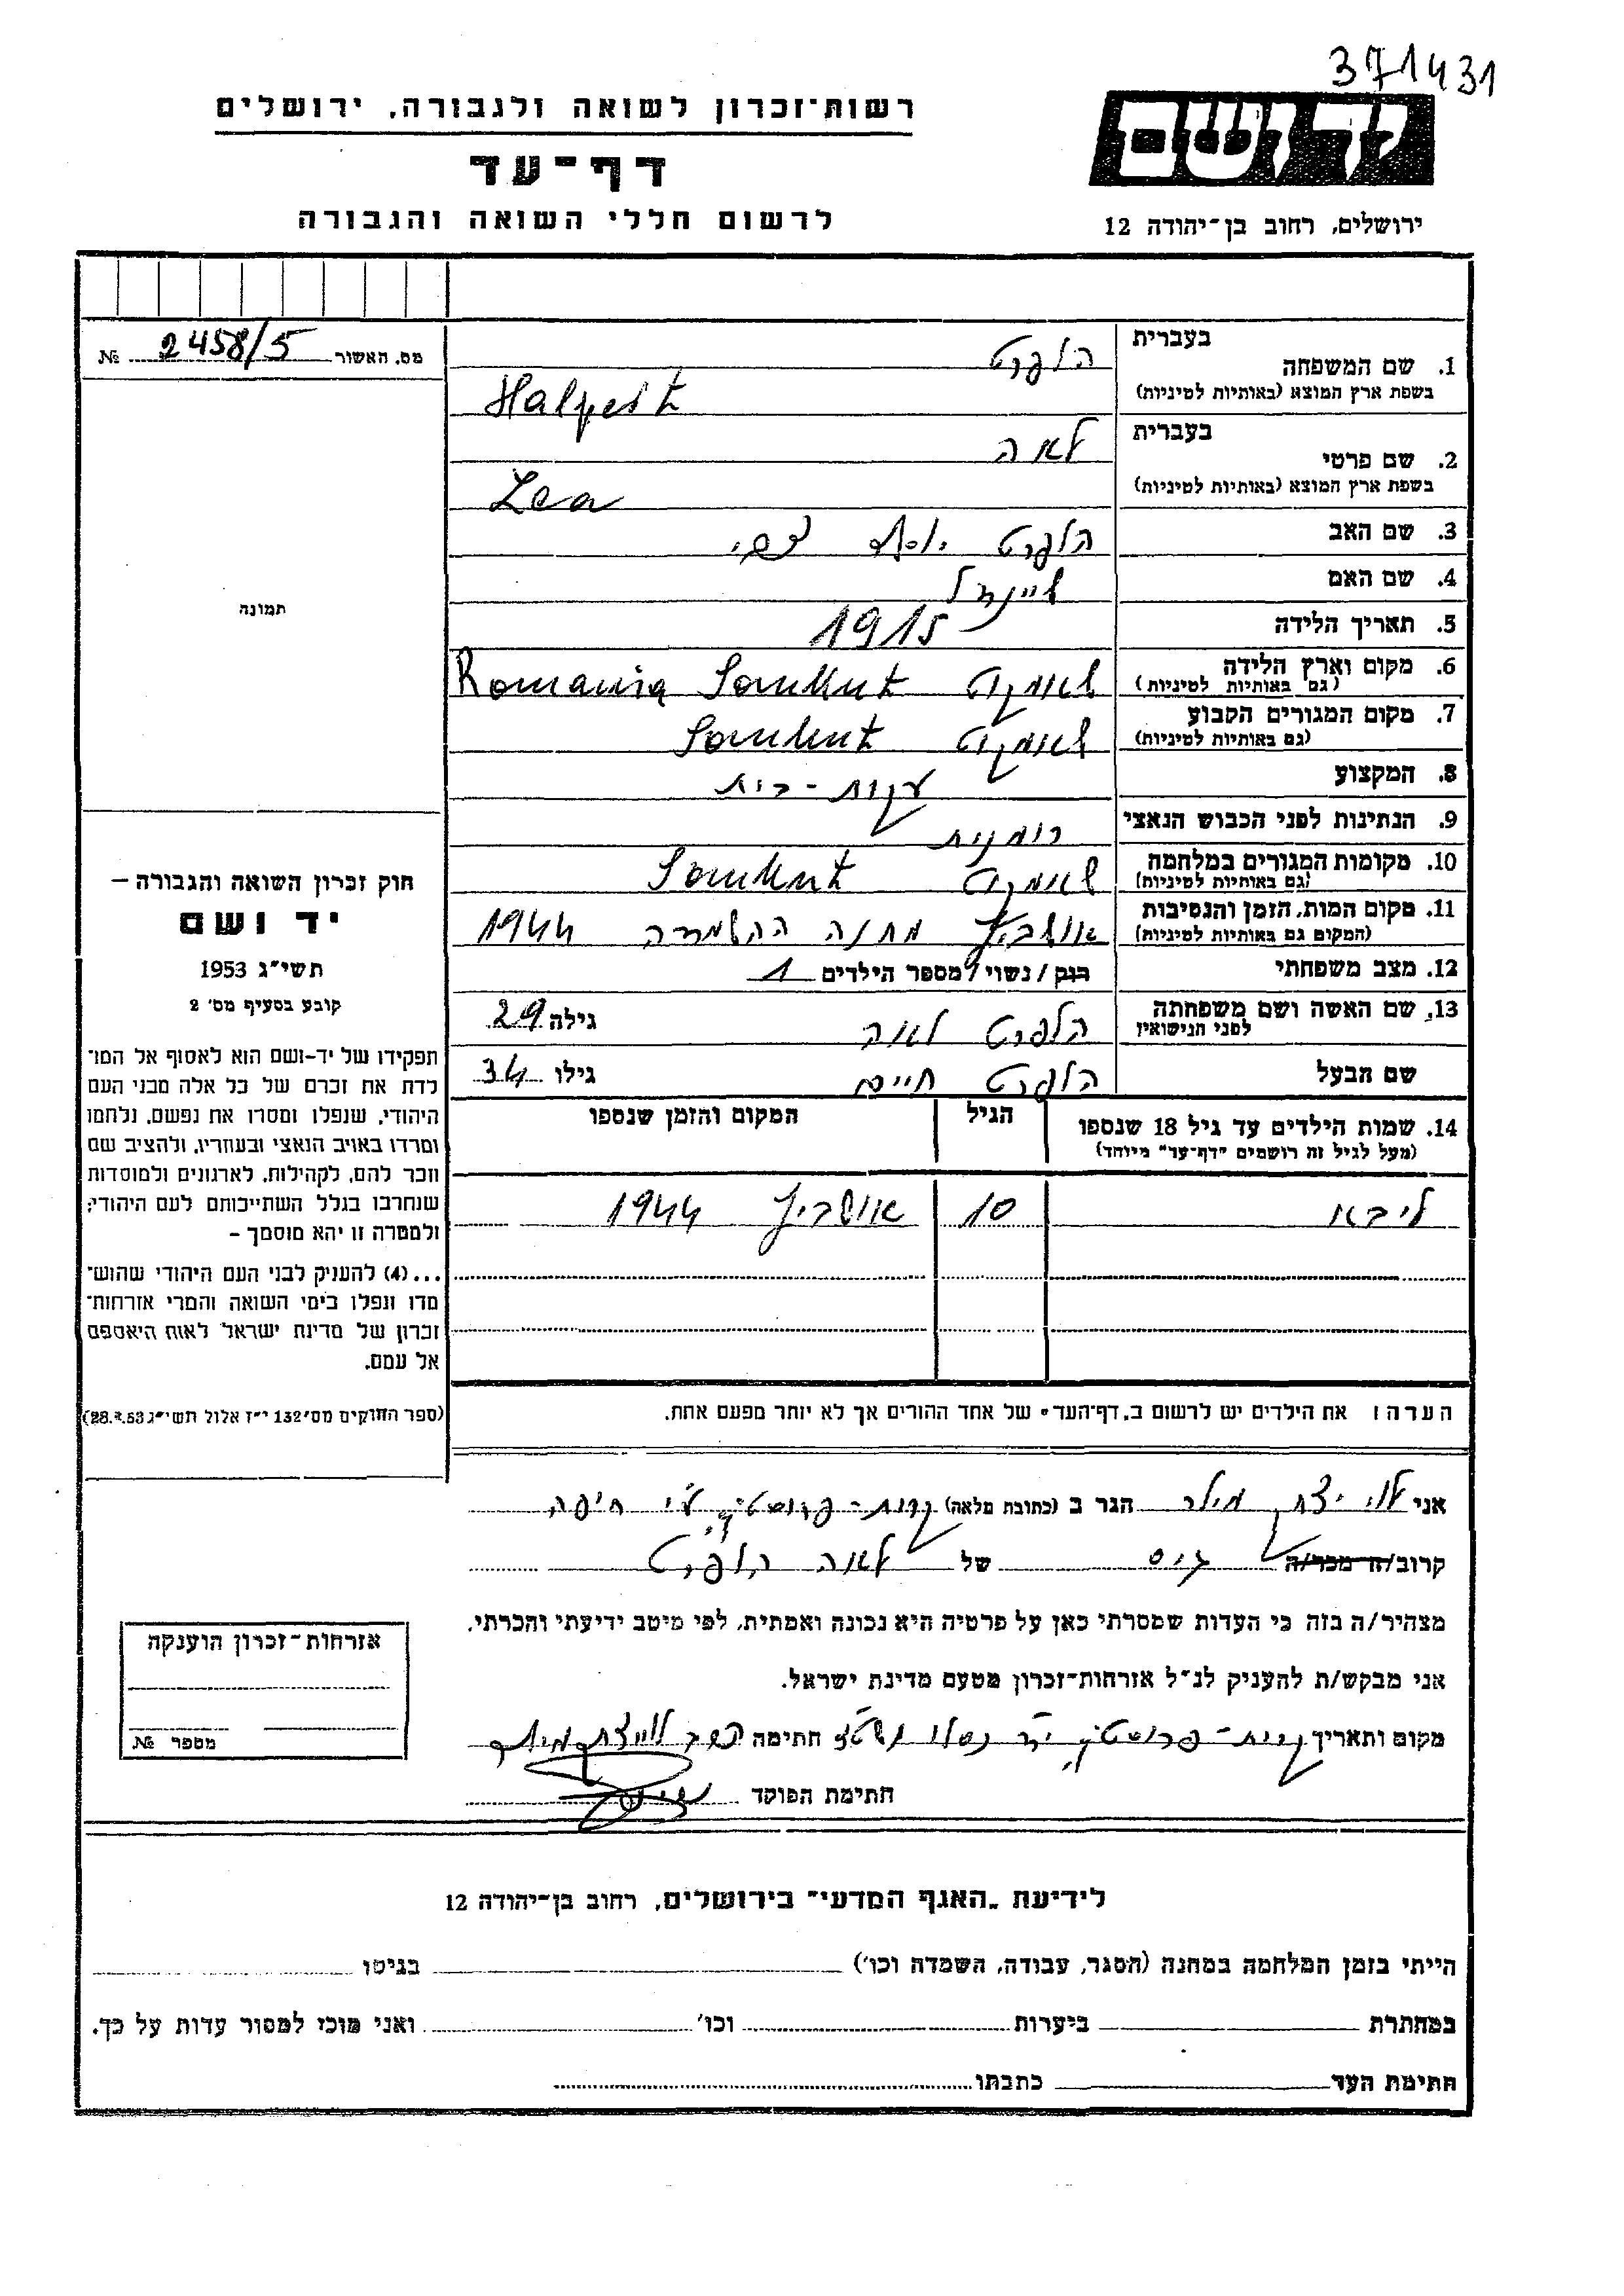 371431
רשות־זכרון לשואה ולגבורה, ירושלים
דף־עד
לרשום חללי השואה והגבורה
יד ושם
ירושלים, רחוב בן־יהודה 12
מס. האשור 2458/5 №
תמונה
חוק זכרון השואה והגבורה —
יד ושם
תשי״ג 1953
קובע בסעיף מס' 2
תפקידו של יד-ושם הוא לאסוף אל המו־
לדת את זכרם של כל אלה מבני העם
היהודי, שנפלו ומסרו את נפשם, נלחמו
ומרדו באויב הנאצי ובעוזריו, ולהציב שם
וזכר להם, לקהילות, לארגונים ולמוסדות
שנחרבו בגלל השתייכותם לעם היהודי;
ולמטרה זו יהא מוסמך –
...(4) להעניק לבני העם היהודי שהוש־
מדו ונפלו בימי השואה והמרי אזרחות־
זכרון של מדינת ישראל לאות היאספם
אל עמם.
(ספר החוקים מס' 132 י״ז אלול תשי״ג 28.8.53)
בעברית
1. שם המשפחה הלפרט
בשפת ארץ המוצא (באותיות לטיניות) Halpert
בעברית
2. שם פרטי לאה
בשפת ארץ המוצא (באותיות לטיניות) Lea
3. שם האב הלפרט יוסף צבי
4. שם האם שיינדל
5. תאריך הלידה 1915
6. מקום וארץ הלידה שאמקוט Somkut Romania
(גם באותיות לטיניות)
7. מקום המגורים הקבוע שאמקוט Somkut
(גם באותיות לטיניות)
8. המקצוע עקרת-בית
9. הנתינות לפני הכבוש הנאצי רומנית
10. מקומות המגורים במלחמה שאמקוט Somkut
(גם באותיות לטיניות)
11. מקום המות, הזמן והנסיבות אושביץ מחנה ההשמדה 1944
(המקום גם באותיות לטיניות)
12. מצב משפחתי רוק / נשוי / מספר הילדים 1
13. שם האשה ושם משפחתה הלפרט לאה גילה 29
לפני הנישואין
שם הבעל הלפרט חיים גילו 34
14. שמות הילדים עד גיל 18 שנספו הגיל המקום והזמן שנספו
(מעל לגיל זה רושמים "דף-עד" מיוחד)
ליבא 10 אושביץ 1944
הערה: את הילדים יש לרשום ב„דף־העד" של אחד ההורים אך לא יותר מפעם אחת.
אני לוי יצחק מילר הגר ב (כתובת מלאה) קרית-פרוסטיג ע״י חיפה
קרוב/ה מכר/ה גיס של לאה הלפרט
מצהיר/ה בזה כי העדות שמסרתי כאן על פרטיה היא נכונה ואמתית, לפי מיטב ידיעתי והכרתי.
אני מבקש/ת להעניק לנ״ל אזרחות־זכרון מטעם מדינת ישראל.
מקום ותאריך קרית-פרוסטיג כסלו חתימה
חתימת הפוקד
אזרחות־זכרון הוענקה
מספר №
לידיעת „האגף המדעי" בירושלים, רחוב בן־יהודה 12
הייתי בזמן המלחמה במחנה (הסגר, עבודה, השמדה וכו') בגיטו
במחתרת ביערות וכו' ואני מוכן למסור עדות על כך.
חתימת העד כתבתו